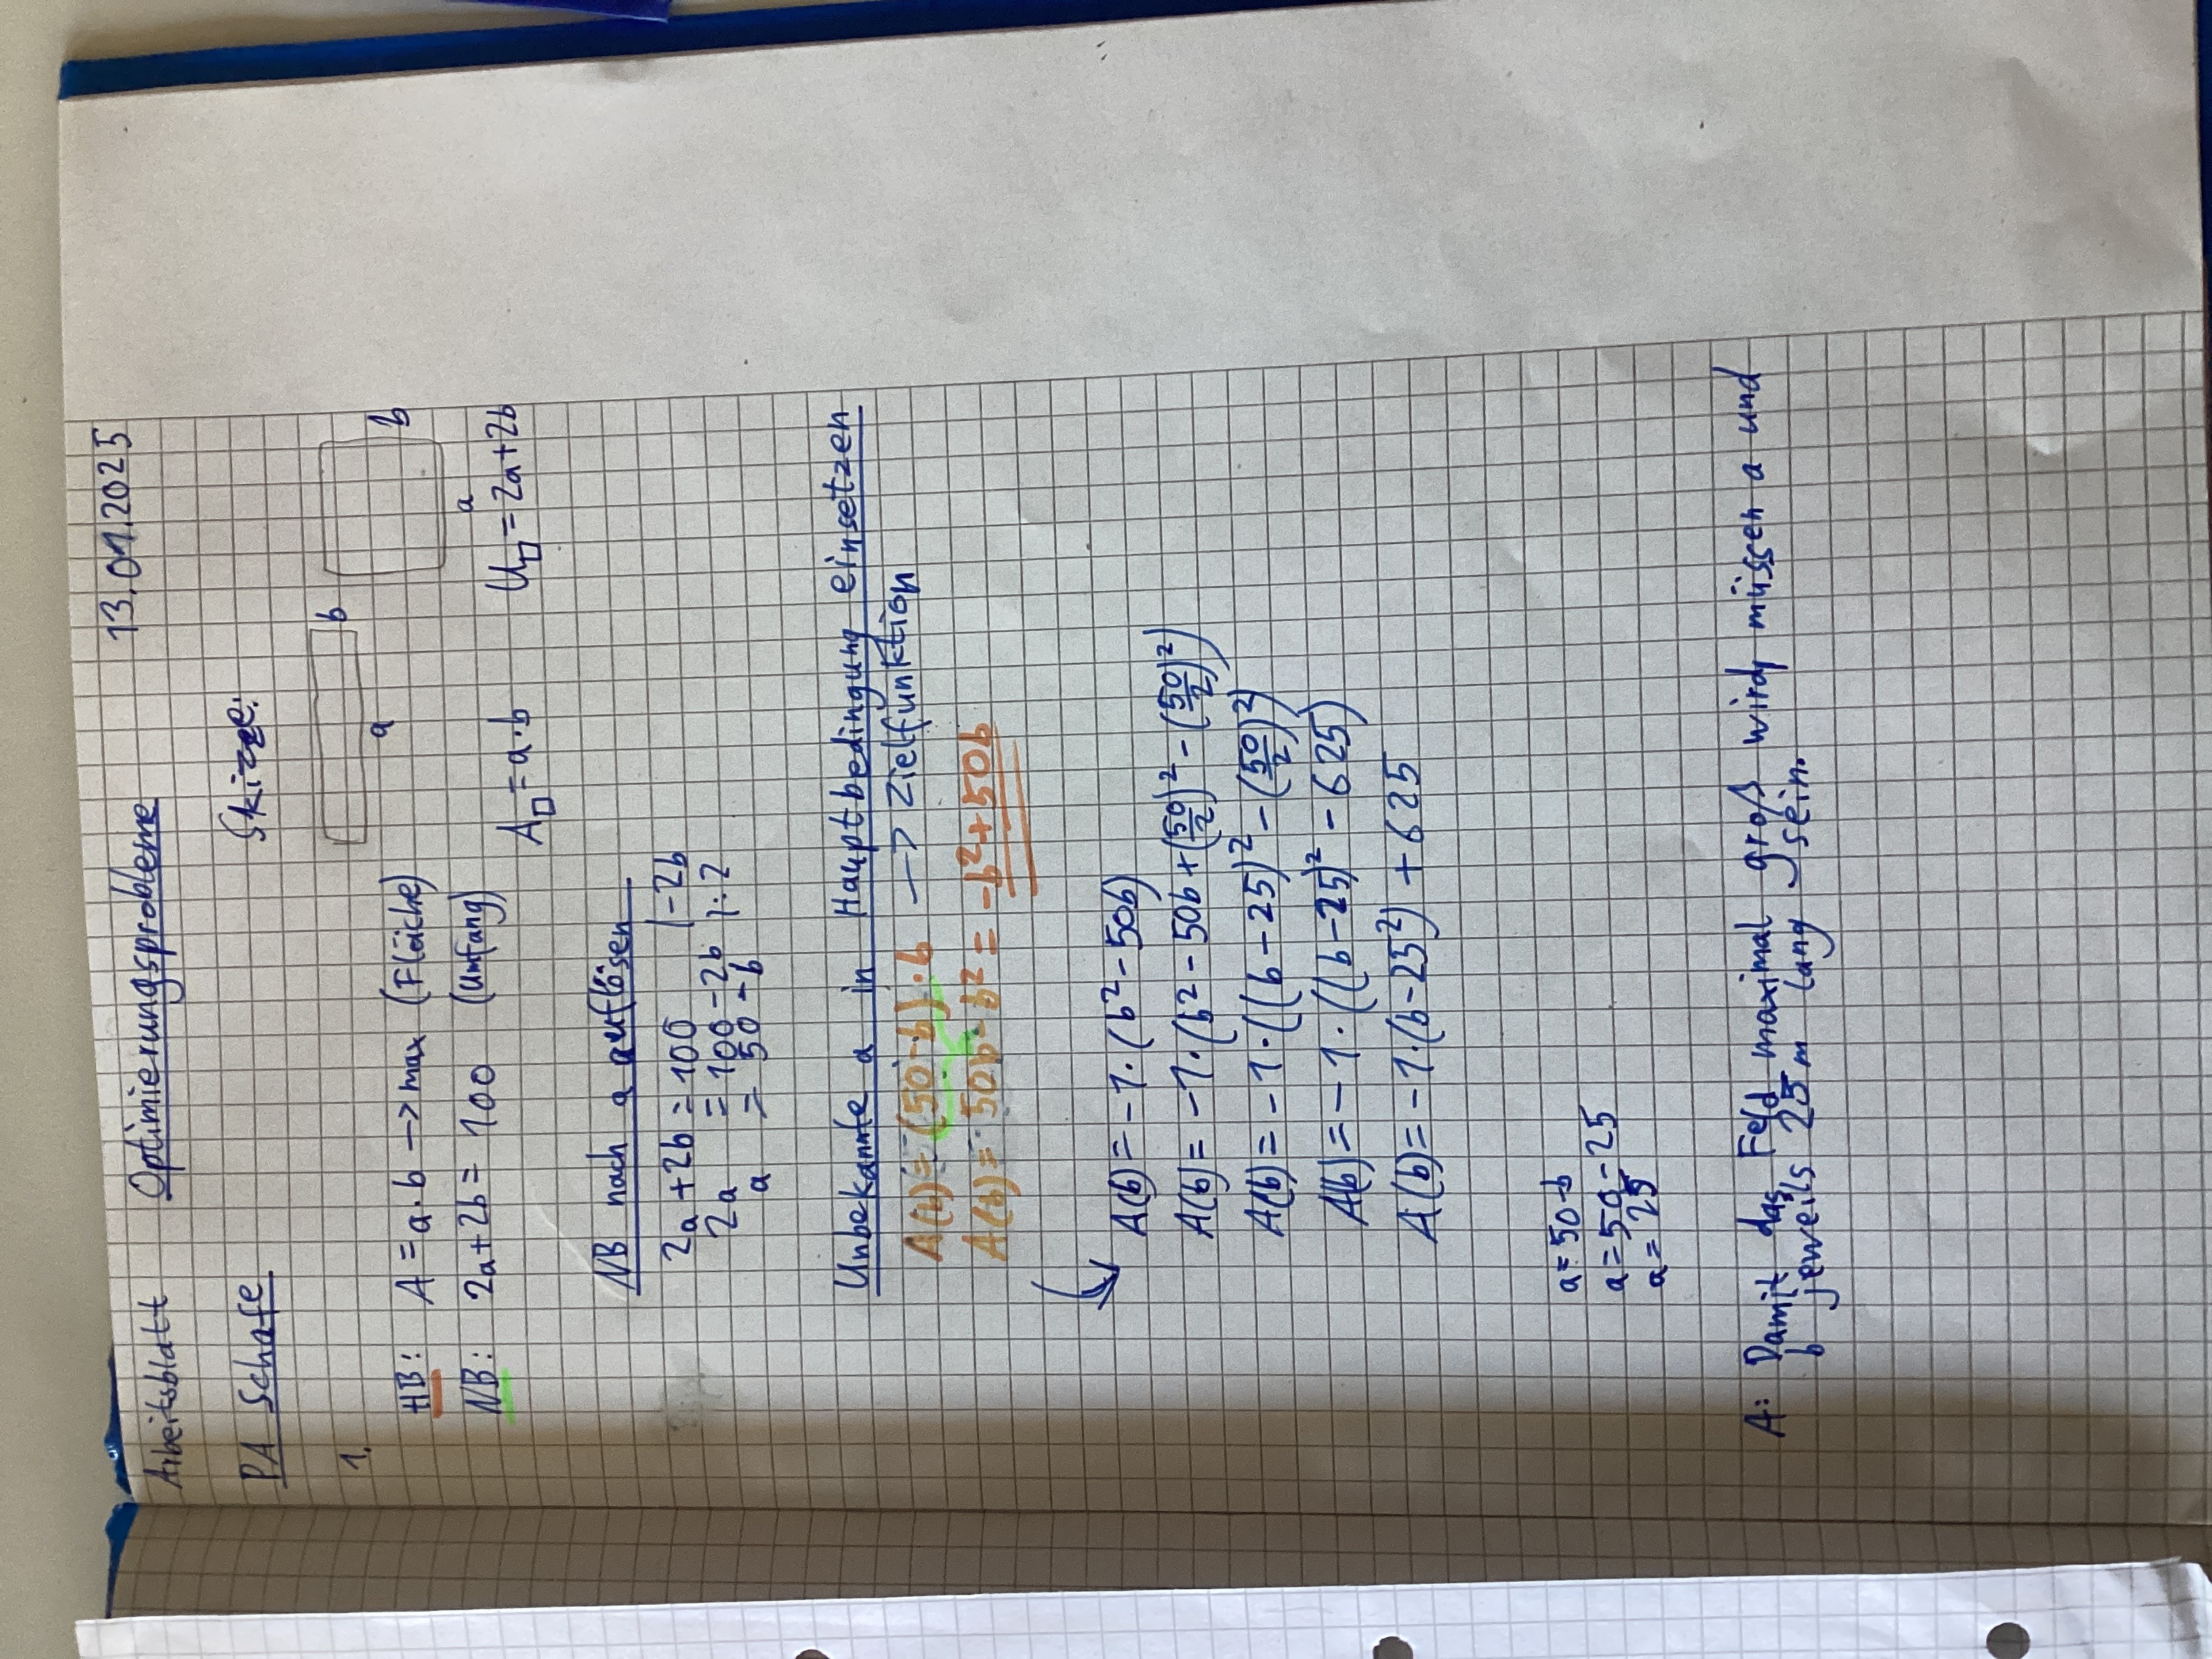 Arbeitsblatt Optimierungsprobleme 13.01.2025
PA Schafe Skizze:
1.
b b
a a
HB: A = a·b -> max (Fläche)
NB: 2a+2b = 100 (Umfang)
A□ = a·b U□ = 2a+2b
NB nach a auflösen
2a+2b = 100 |-2b
2a = 100-2b |:2
a = 50-b
Unbekannte a in Hauptbedingung einsetzen
-> Zielfunktion
A(b) = (50-b)·b
A(b) = 50b-b² = -b²+50b
A(b) = -1·(b²-50b)
A(b) = -1·(b²-50b+(50/2)²-(50/2)²)
A(b) = -1·((b-25)²-(50/2)²)
A(b) = -1·((b-25)²-625)
A(b) = -1·(b-25²)+625
a=50-b
a=50-25
a=25
A: Damit das Feld maximal groß wird, müssen a und
b jeweils 25m lang sein.